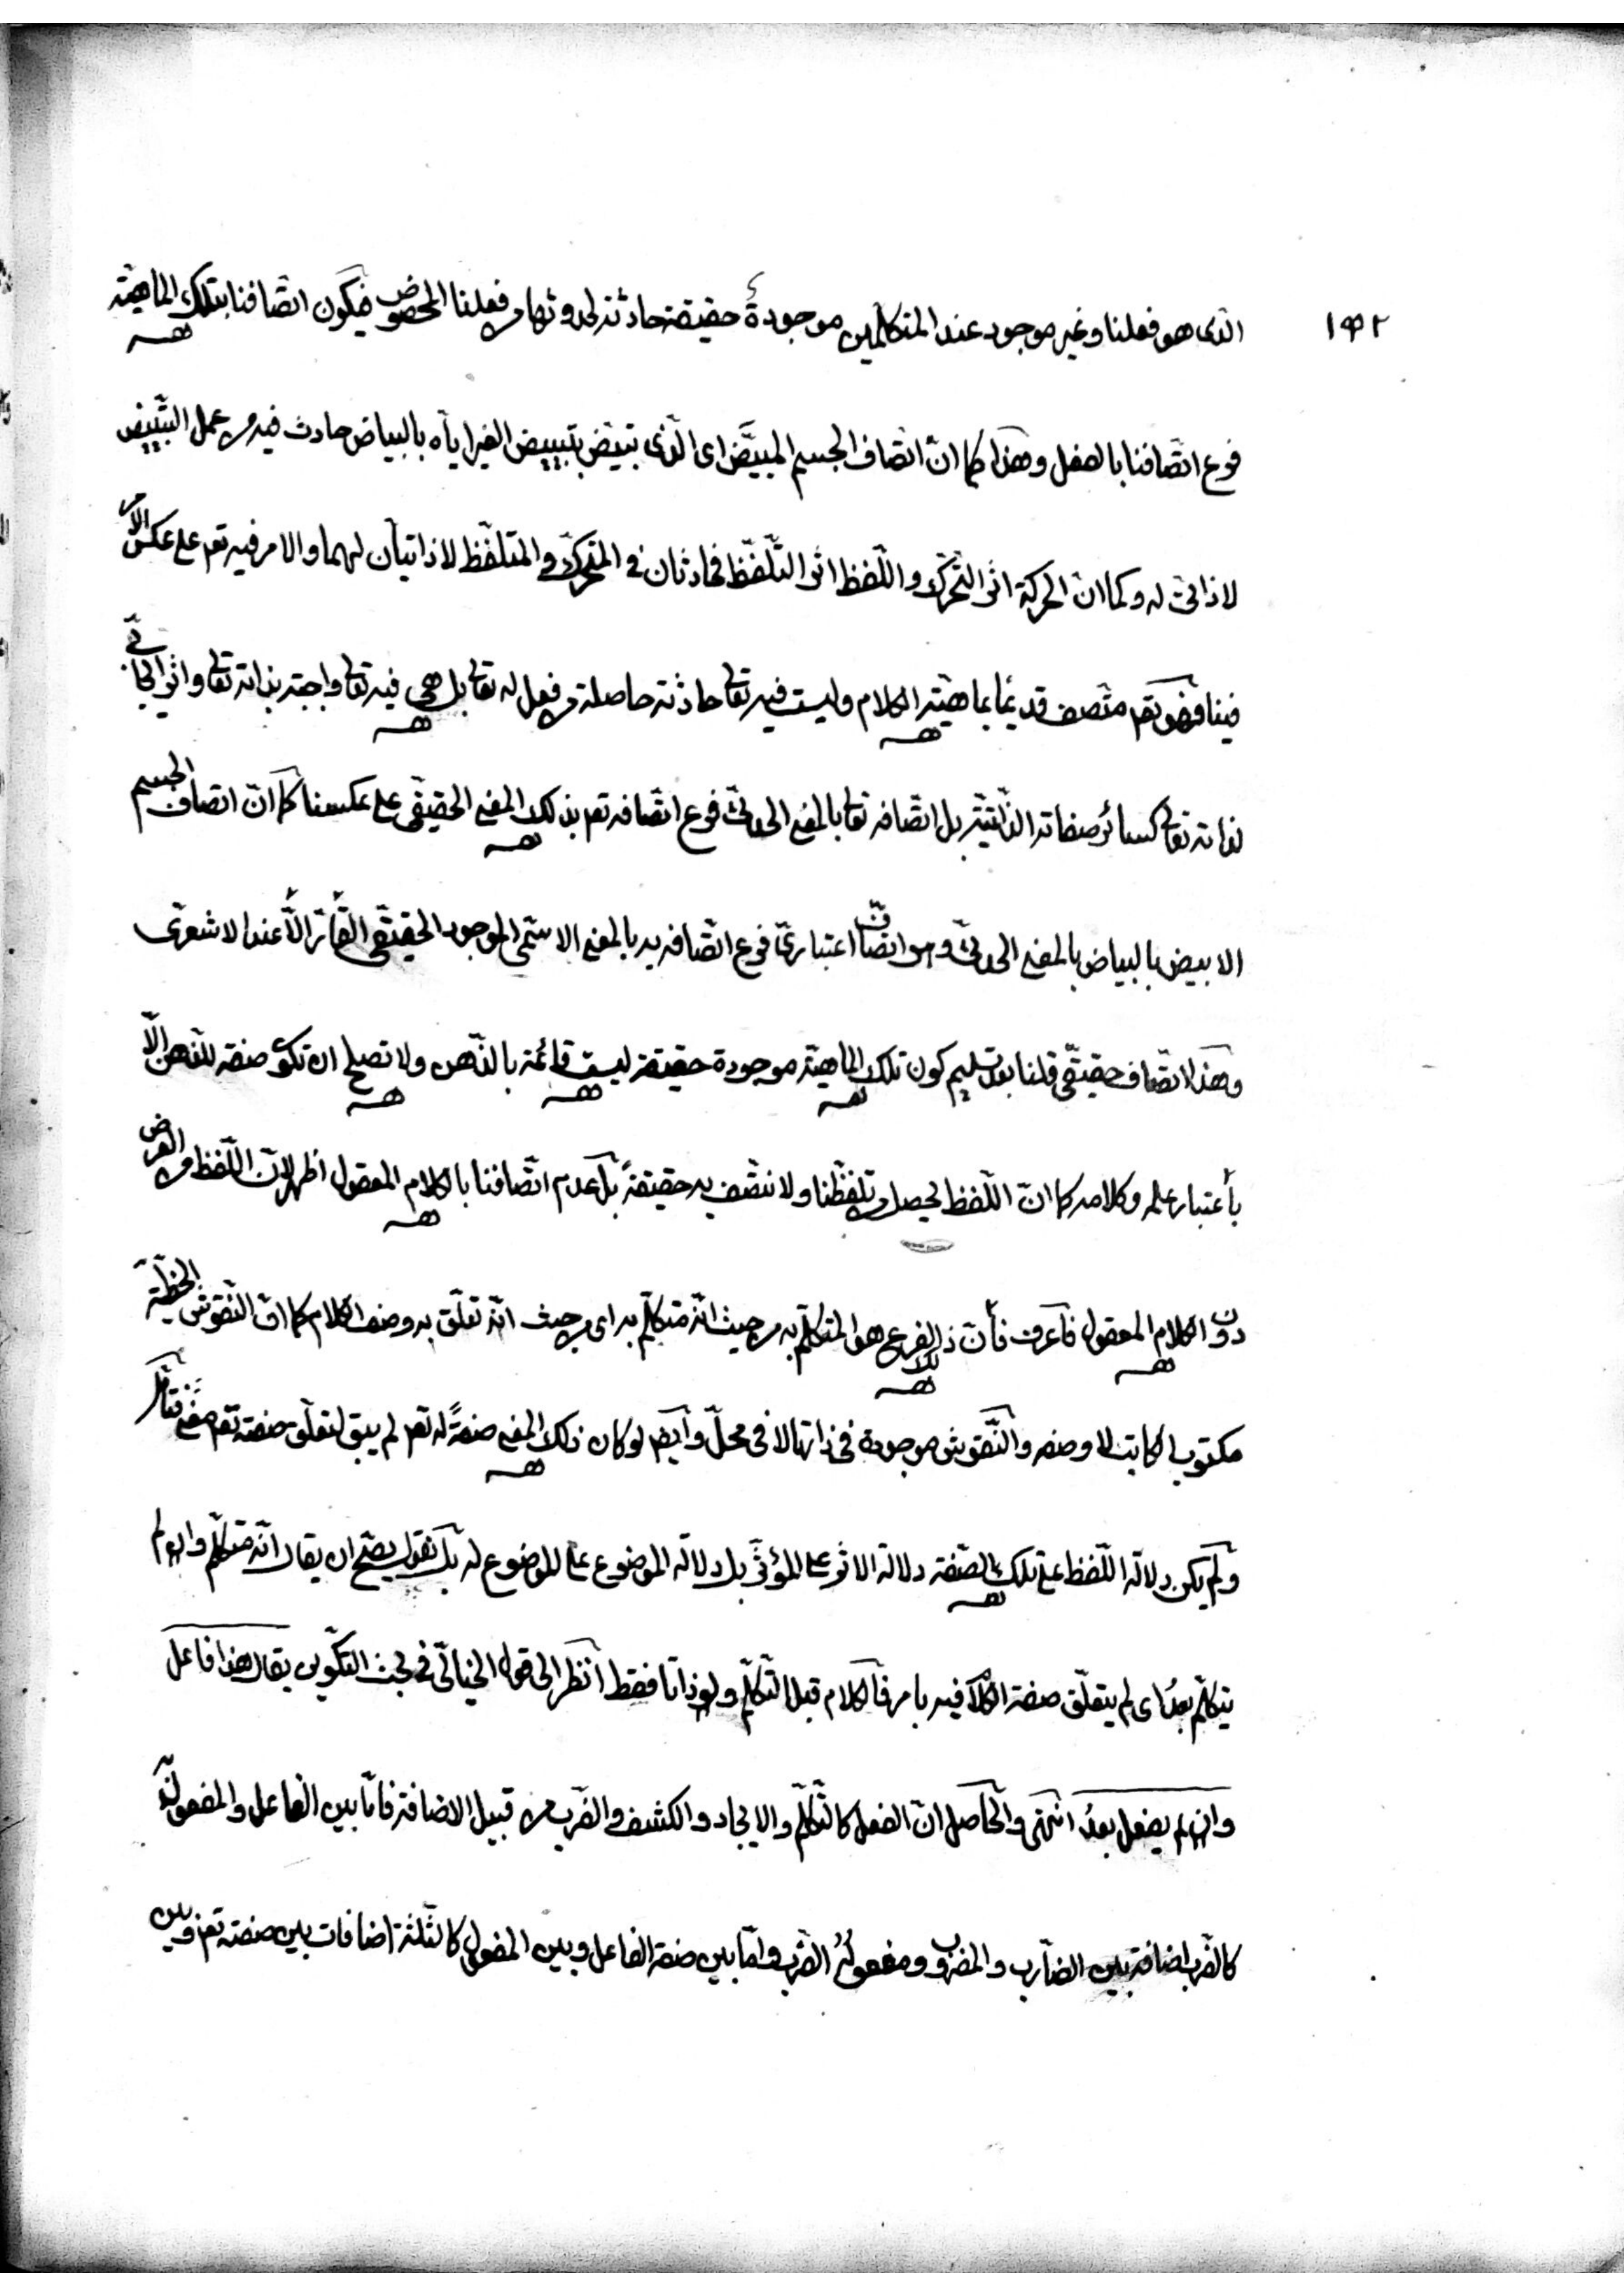 ١٥٢
الّذى هو فعلنا وغير موجود عند المتكلّمين موجودةً حقيقة حادثة لحدوثها من فعلنا المخصوص فيكون اتّصافنا بتلك الماهيّة
فرع اتّصافنا بالفعل وهذا كما انّ اتّصاف الجسم المبيَّض اى الّذى تبيّض بتبييض الغير ايّاه بالبياض حادث فيه من عمل التّبييض
لا ذاتىّ له وكما انّ الحركة اثر التّحرّك واللّفظ اثر التّلفّظ فحادثان فى المتحرّك والمتلفّظ لا ذاتيّان لهما والامر فيه تعم على عكس الامر
فينا فهو تعم متّصف قديمًا بماهيّة الكلام وليست فيه تعالى حادثة حاصلة من فعل له تعالى بل هى فيه تعالى واجبة بذاته تعالى واثر ايجابىّ
لذاته تعالى كسائر صفاته الذّاتيّة بل اتّصافه تعالى بالمعنى الحدثىّ فرع اتّصافه تعم بذلك المعنى الحقيقى على عكسنا كما انّ اتصاف الجسم
الابيض بالبياض بالمعنى الحدثىّ وهو اتّصاف اعتبارىّ فرع اتّصافه به بالمعنى الاسمّى الموجود الحقيقىّ القائم الّا عند الاشعرى
وهذا الاتّصاف حقيقىّ قلنا بعد تسليم كون تلك الماهيّة موجودة حقيقة ليست قائمة بالذّهن ولا تصلح ان تكون صفة للذهن الّا
بأعتبار علمه وكلامه كما انّ اللّفظ يحصل من تلفّظنا ولا نتّصف به حقيقةً بل عدم اتّصافنا بالكلام المعقول اظهر لانّ اللّفظ من العرض
دون الكلام المعقول فأعرف فأنّ ذلك الفرع هو المتكلّم به من حيث انّه متكلّم به اى من حيث انّه تعلّق به وصف الكلام كما انّ النّقوش الخطّيّة
مكتوب الكاتب لا وصفه والنّقوش موجودة فى ذاتها لا فى محلّ وايضم لو كان ذلك المعنى صفةً له تعم لم يبق لتعلّق صفته تعم معنى فتأمّل
ولم يكن دلالة اللّفظ على تلك الصّفة دلالة الاثر على المؤثّر بل دلالة الموضوع على الموضوع له بل نقول يصحّ ان يقال انّه متكلّم وان لم
يتكلّم بعدُ اى لم يتعلّق صفة الكلام فيه بامر فالكلام قبل التّكلّم ولو ذاتا فقط انظر الى قول الخيالىّ فى بحث التّكوين يقال هذا فاعل
وان لم يفعل بعدُ انتهى والحاصل انّ الفعل كالتّكلّم والايجاد والكشف والضّرب من قبيل الاضافة فامّا بين الفاعل والمفعول به
كالضّرب اضافة بين الضّارب والمضروب ومفعولُهُ الضّرب وامّا بين صفة الفاعل وبين المفعول كالثّلثة اضافات بين صفته تعم وبين